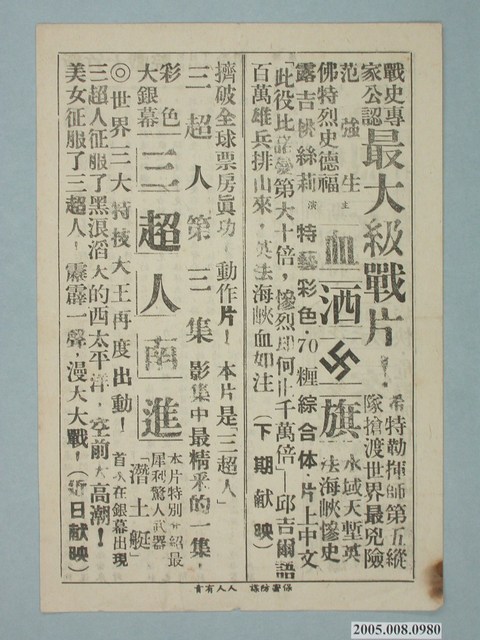 戰史專
家公認
最大級戰片！
希特勒揮師第五縱
隊搶渡世界最兇險
范強生
佛特烈史德福
主
血洒卐旗
永域天塹英
法海峽慘史
露吉姚絲莉
演
特藝彩色・70糎綜合体片上中文
「此役比諾曼第大十倍，慘烈何止千萬倍—邱吉爾語
百萬雄兵排山來，英法海峽血如注
（下期献映）
擠破全球票房眞功，動作片！本片是「三超人」
三超人第三集
影集中最精釆的一集，
彩色
大銀幕
三超人南進
本片特別介紹最
犀利驚人武器
「潛土艇」
首次在銀幕出現
◎世界三大特技大王再度出動！
三超人征服了黑浪滔天的西太平洋，空前大高潮！
美女征服了三超人！霹靂一聲，漫天大戰！（近日献映）
保密防諜 人人有責
2005.008.0980